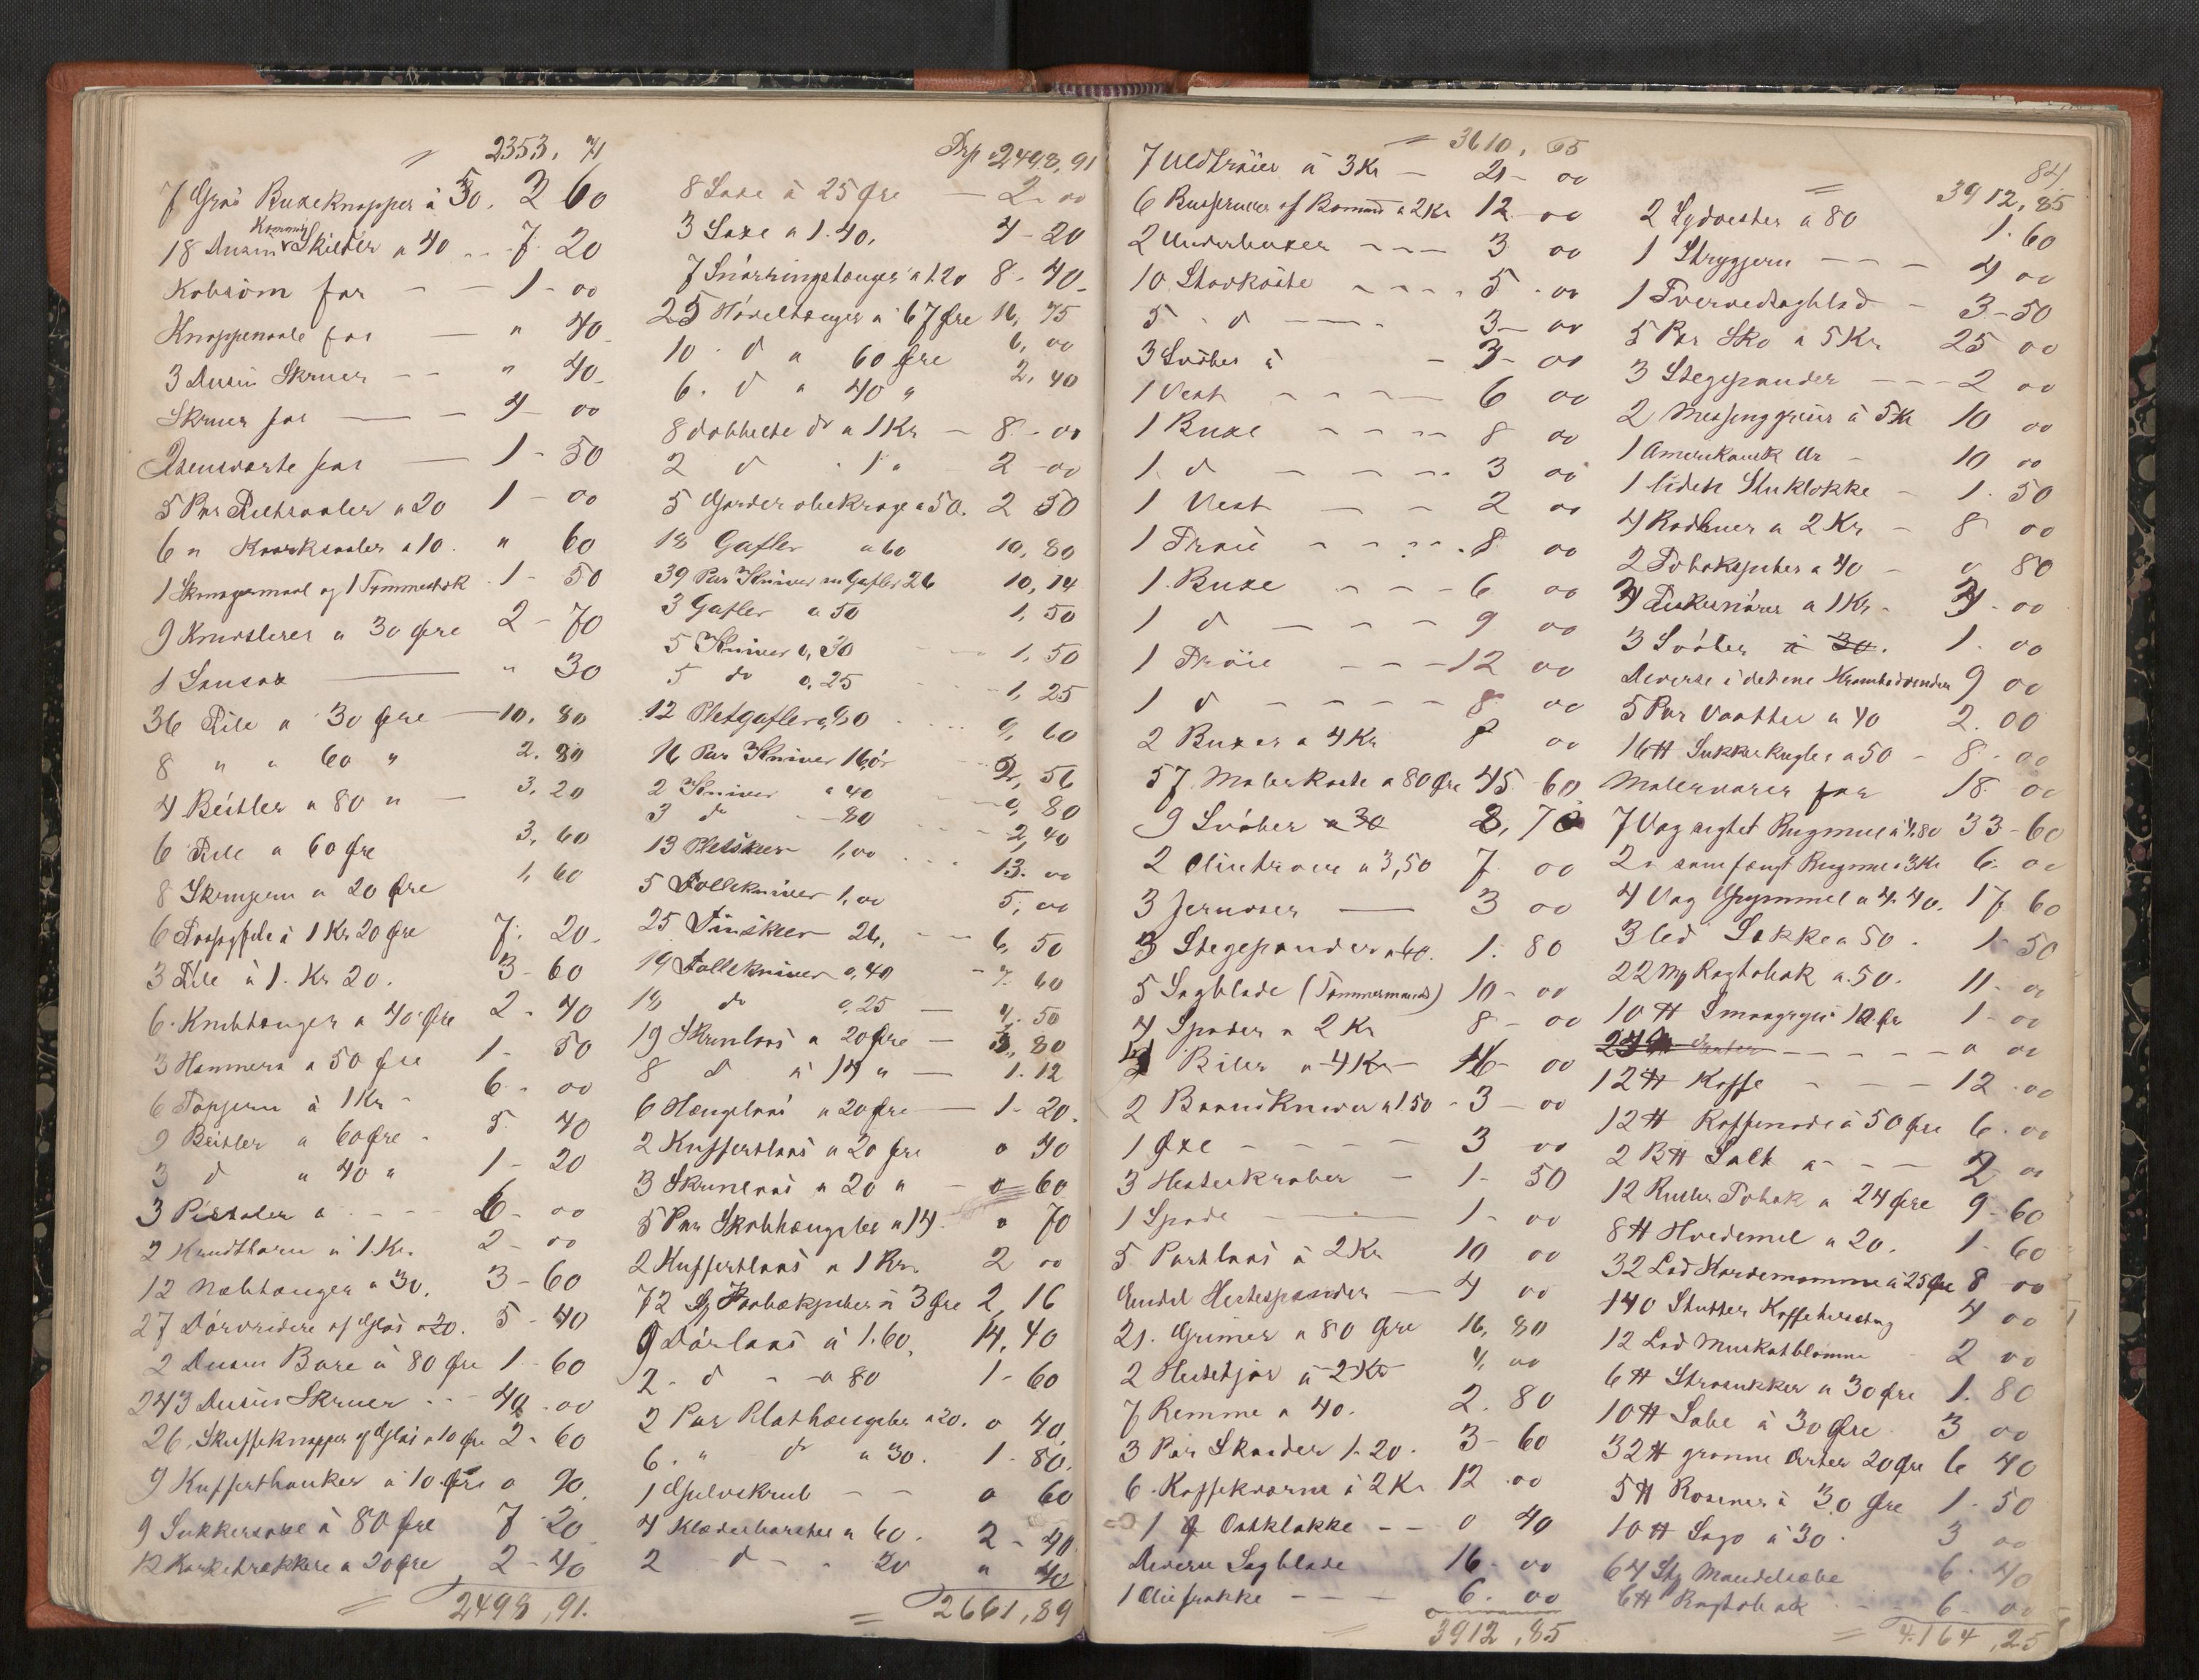 2353, 71
7 Gros Buxeknapper à 30. 3 60
Kommode
18 Dusin Skilder a 40 7. 20
Kobsöm for 1 - 00
Knappenaale for " 40
3 Dusin Skruer " 40
Skruer for 4 00
1 - 50
5 Par a 20 1 - 00
6 " a 10. " 60
1 Skruegemaal og 1 Tommestok 1 - 50
9 a 30 Øre 2 - 70
1 " 30
36 File a 30 Øre 10, 80
8 " a 60 " 2. 80
4 Beitler a 80 " 3, 20
6 File a 60 Øre 3, 60
8 Skrujern a 20 Øre 1, 60
6 à 1 Kr 20 Øre 7. 20
3 File à 1. Kr 20. 3 - 60
6. Knibtænger a 40 Øre 2 - 40
3 Hammera a 50 Øre 1 - 50
6 Tapjern à 1 Kr 6 - 00
9 Beitler a 60 Øre 5 40
3 d " 40 " 1 - 20
3 Pistoler a 6 - 00
2 Krudthorn a 1 Kr. 2 - 00
12 Nabtænger a 30. 3 - 60
27 Dörvridere af Glas a 20. 5 - 40
2 Dusin Bore à 80 Øre 1 - 60
243 Dusin Skruer 40 . 00
26. Skuffeknapper af Glas a 10 Øre 2 - 60
9 Kufferthanker a 10 Øre 0 90
9 Sukkersaxe à 80 Øre 7 20
12 Korketrækkere a 20 Øre 2 - 40
2498, 91.
Trp 2498, 91
8 Saxe à 25 Øre 2 - 00
3 Saxe a 1.40. 4 - 20
7 a 1.20 8 - 40
25 Hóveltænger a 67 Øre 16, 75
10 d a 60 Øre 6, 00
6. d a 40 " 2, 40
8 dobbelte do a 1 Kr 8 - 00
2 d 1 " 2 - 00
5 Garderobekroge a 50. 2 50
18 Gafler a 60 10, 80
39 Par Kniver m Gafler 26 10, 14
3 Gafler a 50 1, 50
5 Kniver 0, 30 1, 50
5 do 0, 25 1, 25
12 Pletgafler 0, 80 9, 60
16 Par Kniver 16 ör 2, 56
2 Kniver a 40 0, 80
3 d 80 2, 40
13 Pletskeer 1, 00 13. 00
5 Follekniver 1, 00 5, 00
25 Tinskeer 26, 6, 50
19 Follekniver 0, 40 7. 60
18 do 0, 25 4. 50
19 Skruelaas a 20 Øre 3, 80
8 d à 14 " 1. 12
6 Hængelaas a 20 Øre 1 - 20.
2 Kuffertlaas a 20 Øre 0 40
3 Skruelaas a 20 " 0 60
5 Par Skabhængsler a 14 0 70
2 Kuffertlaas a 1 Kr. 2 00
72 à 3 Øre 2, 16
9 Dörlaas à 1.60, 14, 40
2 - d - a 80 1 - 60
2 Par Plathængsler a 20. 0 40
6. " do a 30. 1 - 80.
1 Gulvskrub 0 60
4 Klædeborster a 60. 2 - 40
2 d 20 " 40
2661, 89
3610, 65
7 Uldtröier à 3 Kr 21 - 00
6 Busseruner af Bomuld a 2 Kr 12 - 00
2 Underbuxer 3 00
10 Stovkoste 5 . 00
5 d 3 - 00
3 Svöber à 3 - 00
1 Vest 6 00
1 Buxe 8 00
1. d 3 00
1 Vest 2 00
1 Tröie 8 00
1. Buxe 6 00
1 d 9 00
1 Tröie 12 00
1 d 8 00
2 Buxer a 4 Kr 8 00
57. Malerkoste a 80 Øre 45 - 60
9 Svöber a 30 8, 70
2 a 3,50 7. 00
3 3 00
3 Stegepander a 60. 1. 80
5 Sagblade (Tømmermænds) 10 - 00
4 Spader a 2 Kr 8 - 00
Biler a 4 Kr 16 00
2 Baandkniver a 1.50 3 - 00
1 Øxe 3 00
3 Hesteskraber 1 - 50
1 Spade 1 - 00
5 Portlaas à 2 Kr 10 00
Endel 4 00
21. Grimer a 80 Øre 16, 80
2 Hestetjör a 2 Kr 4, 00
7 Remme a 40. 2. 80
3 Par 1.20. 3 - 60
6. Kaffekværne à 2 Kr 12 . 00
1 Ostklokke 0 40
Diverse Sagblade 16 - 00
1 Oliefrakke 6. 00
3912, 85
84
3912, 85
2 Sydvester a 80 1. 60
1 Strygjern 4 00
1 Tvervedsagblad 3 - 50
5 Par Sko a 5 Kr 25 00
3 Stegepander 2 00
2 Messinggriis à 5 Kr 10 00
1 Amerikansk Ur 10 00
1 liden Stuklokke 1. 50
4 Kodhuer a 2 Kr 8 00
2 Tobakspiber a 40 0 80
a 1 Kr 3 - 00
3 Svöber à 30. 1. 00
Diverse i det ene Krambodvindu 9 00
5 Par Vaatter a 40 2. 00
16 ℔ Sukkerkugler a 50 8 - 00
Malervarer for 18 00
7 Vog sigtet Rugmel à 4,80 33 - 60
2 " samfængt Rugmel a 3 Kr 6. 00
4 Vog Grymmel a 4.40. 17 60
3 led Sække a 50. 1 - 50
22 Mk Ragtobak a 50. 11 - 00
10 ℔ Smaagryn 10 Øre 1 - 00
Erter 0 00
12 ℔ Kaffe 12 . 00
12 ℔ à 50 Øre 6. 00
2 B℔ Salt a 2 00
12 Ruller Tobak a 24 Øre 9 - 60
8 ℔ Hvedemel a 20. 1 - 60
32 Lod Kardemomme a 25 Øre 8 00
140 4 00
12 Lod Muskatblomme 2 00
6 ℔ Strøsukker a 30 Øre 1. 80
10 ℔ Sæbe à 30 Øre 3 00
32 ℔ grønne Erter 20 Øre 6 40
5 ℔ Rosiner à 30 Øre 1 - 50
10 ℔ Sago à 30. 3 00
64 Stk Mandelsæbe 6 - 40
6 ℔ Ragtobak 6 - 00
4.164, 25